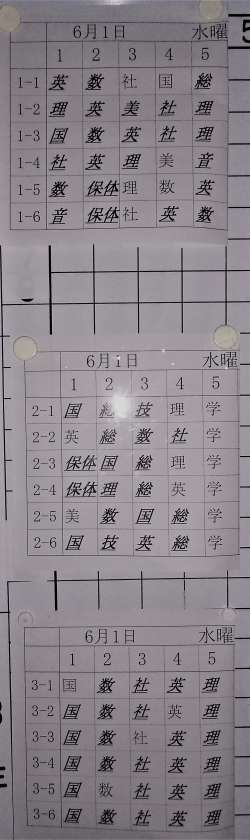 6月1日 水曜
1 2 3 4 5
1-1 英 数 社 国 総
1-2 理 英 美 社 理
1-3 国 数 英 社 理
1-4 社 英 理 美 音
1-5 数 保体 理 数 英
1-6 音 保体 社 英 数
6月1日 水曜
1 2 3 4 5
2-1 国 総 技 理 学
2-2 英 総 数 社 学
2-3 保体 国 総 理 学
2-4 保体 理 総 英 学
2-5 美 数 国 総 学
2-6 国 技 英 総 学
6月1日 水曜
1 2 3 4 5
3-1 国 数 社 英 理
3-2 国 数 社 英 理
3-3 国 数 社 英 理
3-4 国 数 社 英 理
3-5 国 数 社 英 理
3-6 国 数 社 英 理